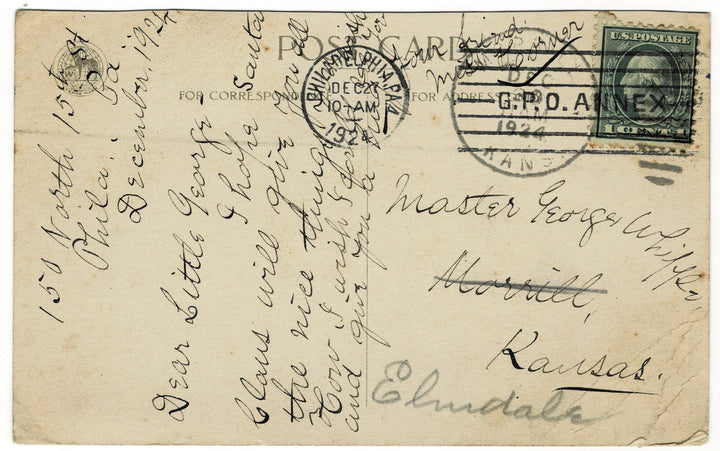 POST CARD
FOR CORRESPOND
FOR ADDRESS
150 North 15th St
Phila. Pa.
December, 1924
Dear Little George -
I hope Santa
Claus will give you all
the nice things
How I wish I
and give you a
Your friend
PHILADELPHIA, PA.
DEC 27
10-AM
1924
DEC
1924
KANS
G.P.O. ANNEX
U.S. POSTAGE
1 CENT 1
Master George Whipple,
Morrill,
Kansas.
Elmdale